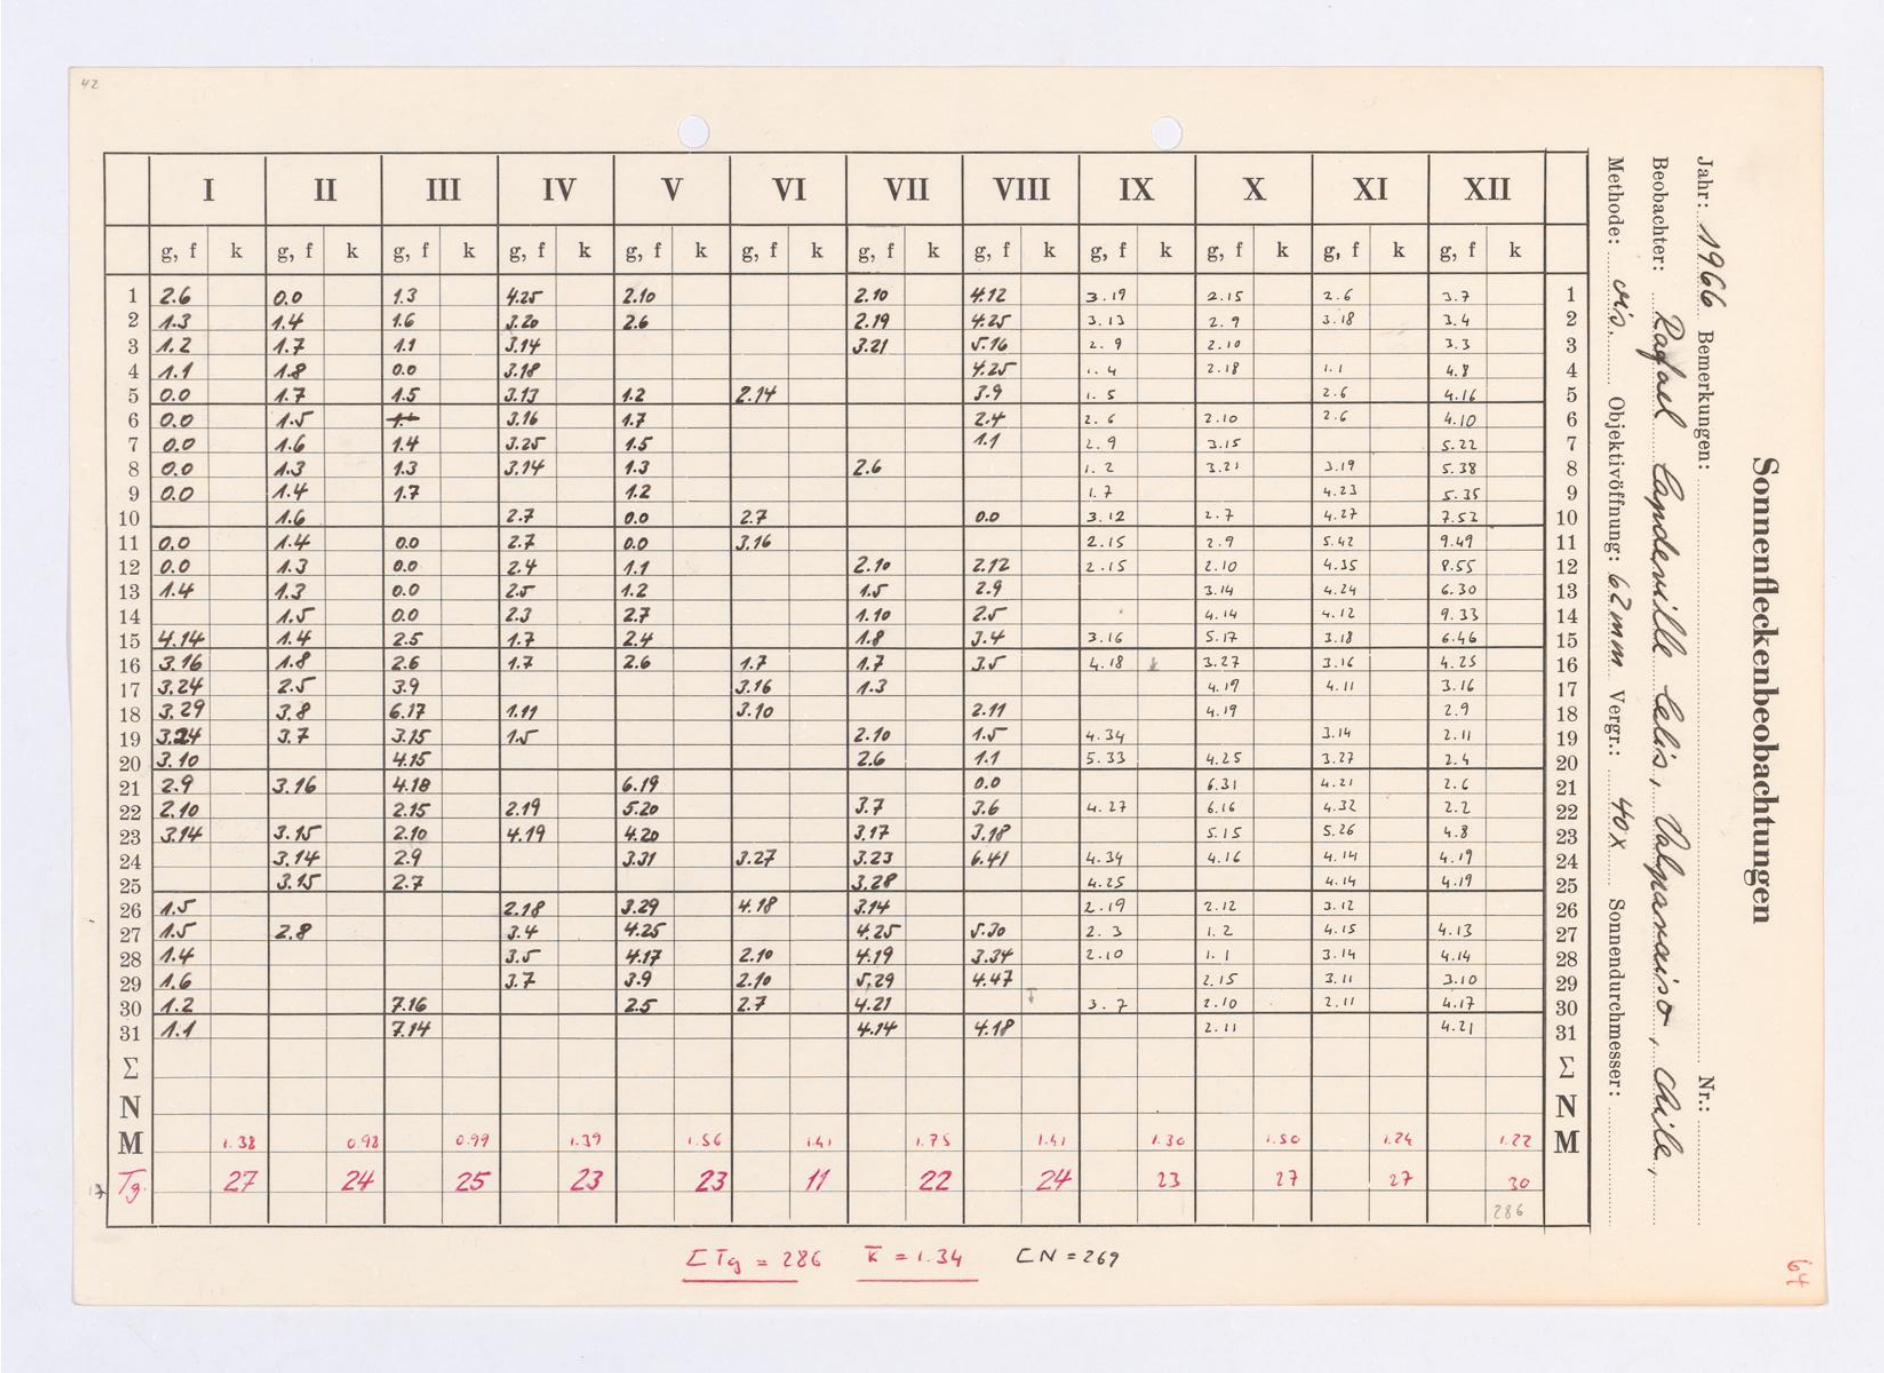 42
Sonnenfleckenbeobachtungen
Jahr: 1966 Bemerkungen: Nr.:
Beobachter: Rafael Candeville Celis, Valparaiso, Chile,
Methode: vis. Objektivöffnung: 62mm Vergr.: 40x Sonnendurchmesser:
I II III IV V VI VII VIII IX X XI XII
g, f k g, f k g, f k g, f k g, f k g, f k g, f k g, f k g, f k g, f k g, f k g, f k
1 2.6 0.0 1.3 4.25 2.10 2.10 4.12 3.19 2.15 2.6 3.7 1
2 1.3 1.4 1.6 3.20 2.6 2.19 4.25 3.13 2.9 3.18 3.4 2
3 1.2 1.7 1.1 3.14 3.21 5.16 2.9 2.10 3.3 3
4 1.1 1.8 0.0 3.18 4.25 1.4 2.18 1.1 4.8 4
5 0.0 1.7 1.5 3.13 1.2 2.14 3.9 1.5 2.6 4.16 5
6 0.0 1.5 3.16 1.7 2.4 2.6 2.10 2.6 4.10 6
7 0.0 1.6 1.4 3.25 1.5 1.1 2.9 3.15 5.22 7
8 0.0 1.3 1.3 3.14 1.3 2.6 1.2 3.21 3.19 5.38 8
9 0.0 1.4 1.7 1.2 1.7 4.23 5.35 9
10 1.6 2.7 0.0 2.7 0.0 3.12 2.7 4.27 7.52 10
11 0.0 1.4 0.0 2.7 0.0 3.16 2.15 2.9 5.42 9.49 11
12 0.0 1.3 0.0 2.4 1.1 2.10 2.12 2.15 2.10 4.35 8.55 12
13 1.4 1.3 0.0 2.5 1.2 1.5 2.9 3.14 4.24 6.30 13
14 1.5 0.0 2.3 2.7 1.10 2.5 4.14 4.12 9.33 14
15 4.14 1.4 2.5 1.7 2.4 1.8 3.4 3.16 5.17 3.18 6.46 15
16 3.16 1.8 2.6 1.7 2.6 1.7 1.7 3.5 4.18 3.27 3.16 4.25 16
17 3.24 2.5 3.9 3.16 1.3 4.19 4.11 3.16 17
18 3.29 3.8 6.17 1.11 3.10 2.11 4.19 2.9 18
19 3.24 3.7 3.15 1.5 2.10 1.5 4.34 3.14 2.11 19
20 3.10 4.15 2.6 1.1 5.33 4.25 3.27 2.4 20
21 2.9 3.16 4.18 6.19 0.0 6.31 4.21 2.6 21
22 2.10 2.15 2.19 5.20 3.7 3.6 4.27 6.16 4.32 2.2 22
23 3.14 3.15 2.10 4.19 4.20 3.17 3.18 5.15 5.26 4.8 23
24 3.14 2.9 3.31 3.27 3.23 6.41 4.34 4.16 4.14 4.19 24
25 3.15 2.7 3.28 4.25 4.14 4.19 25
26 1.5 2.18 3.29 4.18 3.14 2.19 2.12 3.12 26
27 1.5 2.8 3.4 4.25 4.25 5.30 2.3 1.2 4.15 4.13 27
28 1.4 3.5 4.17 2.10 4.19 3.34 2.10 1.1 3.14 4.14 28
29 1.6 3.7 3.9 2.10 5.29 4.47 2.15 3.11 3.10 29
30 1.2 7.16 2.5 2.7 4.21 3.7 2.10 2.11 4.17 30
31 1.1 7.14 4.14 4.18 2.11 4.21 31
Σ Σ
N N
M 1.38 0.98 0.99 1.39 1.56 1.41 1.75 1.41 1.30 1.50 1.24 1.22 M
Tg. 27 24 25 23 23 11 22 24 23 27 27 30
286
ΣTg = 286 k̅ = 1.34 ΣN = 269
64